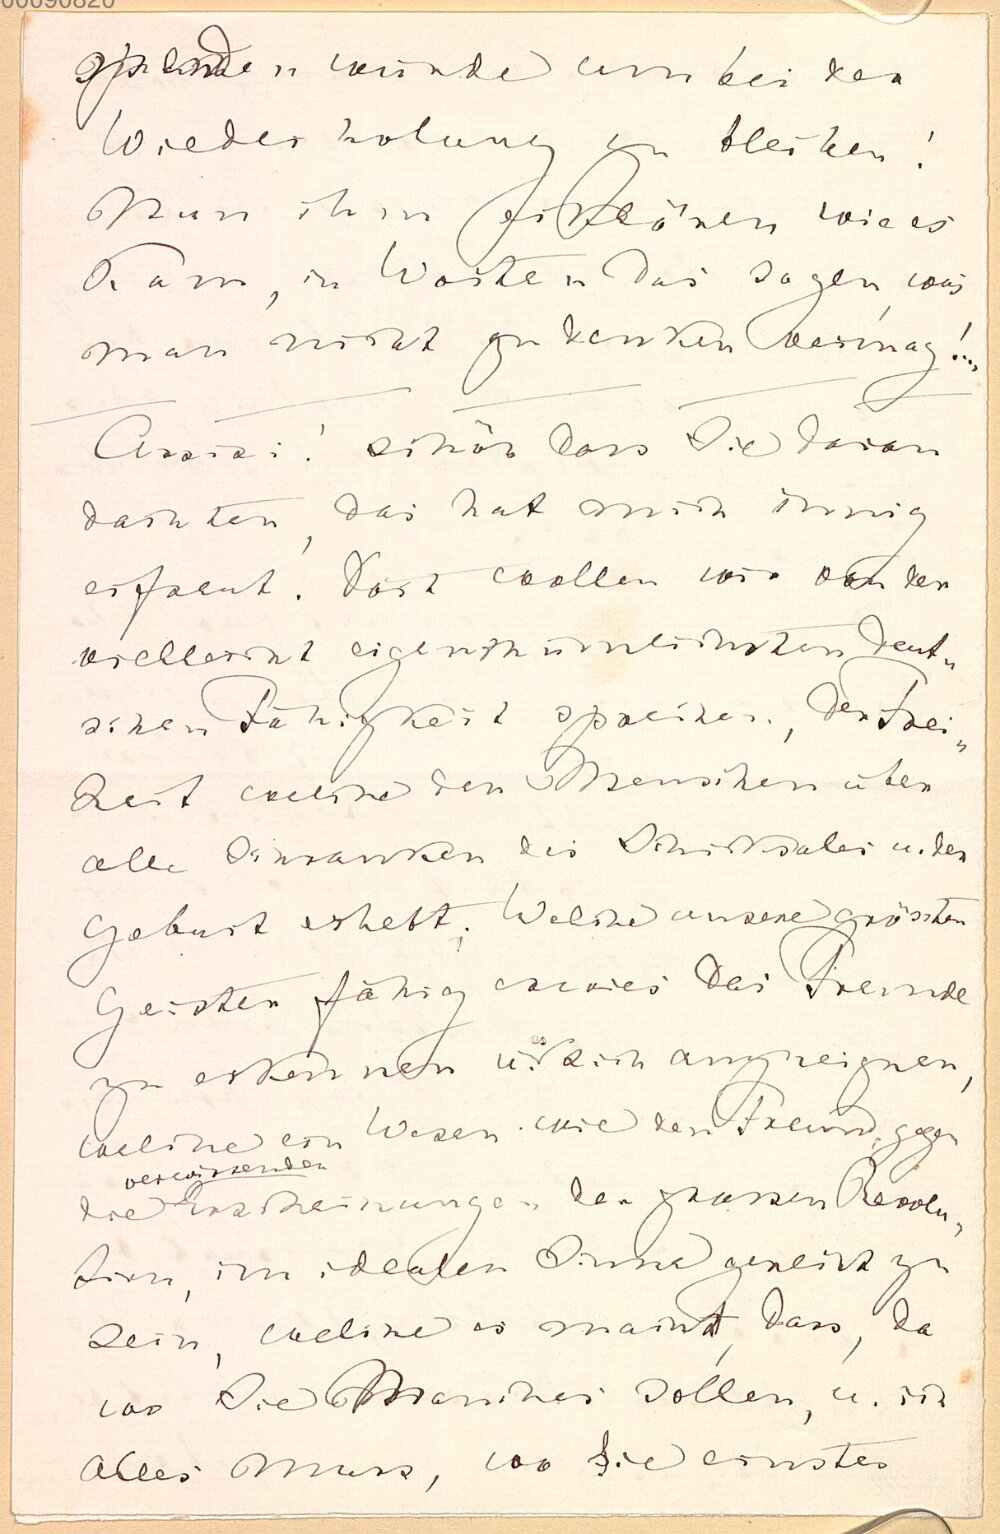 00090820
spenden würde um bei der
Wiederholung zu bleiben!
Nun ihm erklären wie es
kam, in Worten das sagen, was
man nicht zu denken vermag!...
Assisi! schön dass Sie daran
dachten, das hat mich innig
erfreut. Dort wollen wir von der
vielleicht eigenthümlichsten deut-
schen Fähigkeit sprechen, der Frei-
heit welche den Menschen über
alle Schranken des Schicksales u. der
Geburt erhebt. Welche unsere grössten
Geister fähig erwies das Fremde
zu erkennen u. sich anzueignen,
welche ein Wesen wie den Freund, gegen
verwirrenden
die Erscheinungen der grossen Revolu-
tion, im idealen Sinne gerecht zu
sein, welche es macht, dass, da
wo Sie Manches sollen, u. ich
Alles muss, wo Sie ernstes